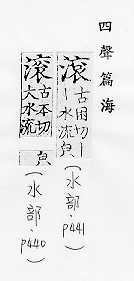 四聲篇海
滾
古困切丨
丨水流皃
(水部.P441)
滾
古本切
大水流
皃
(水部.P440)